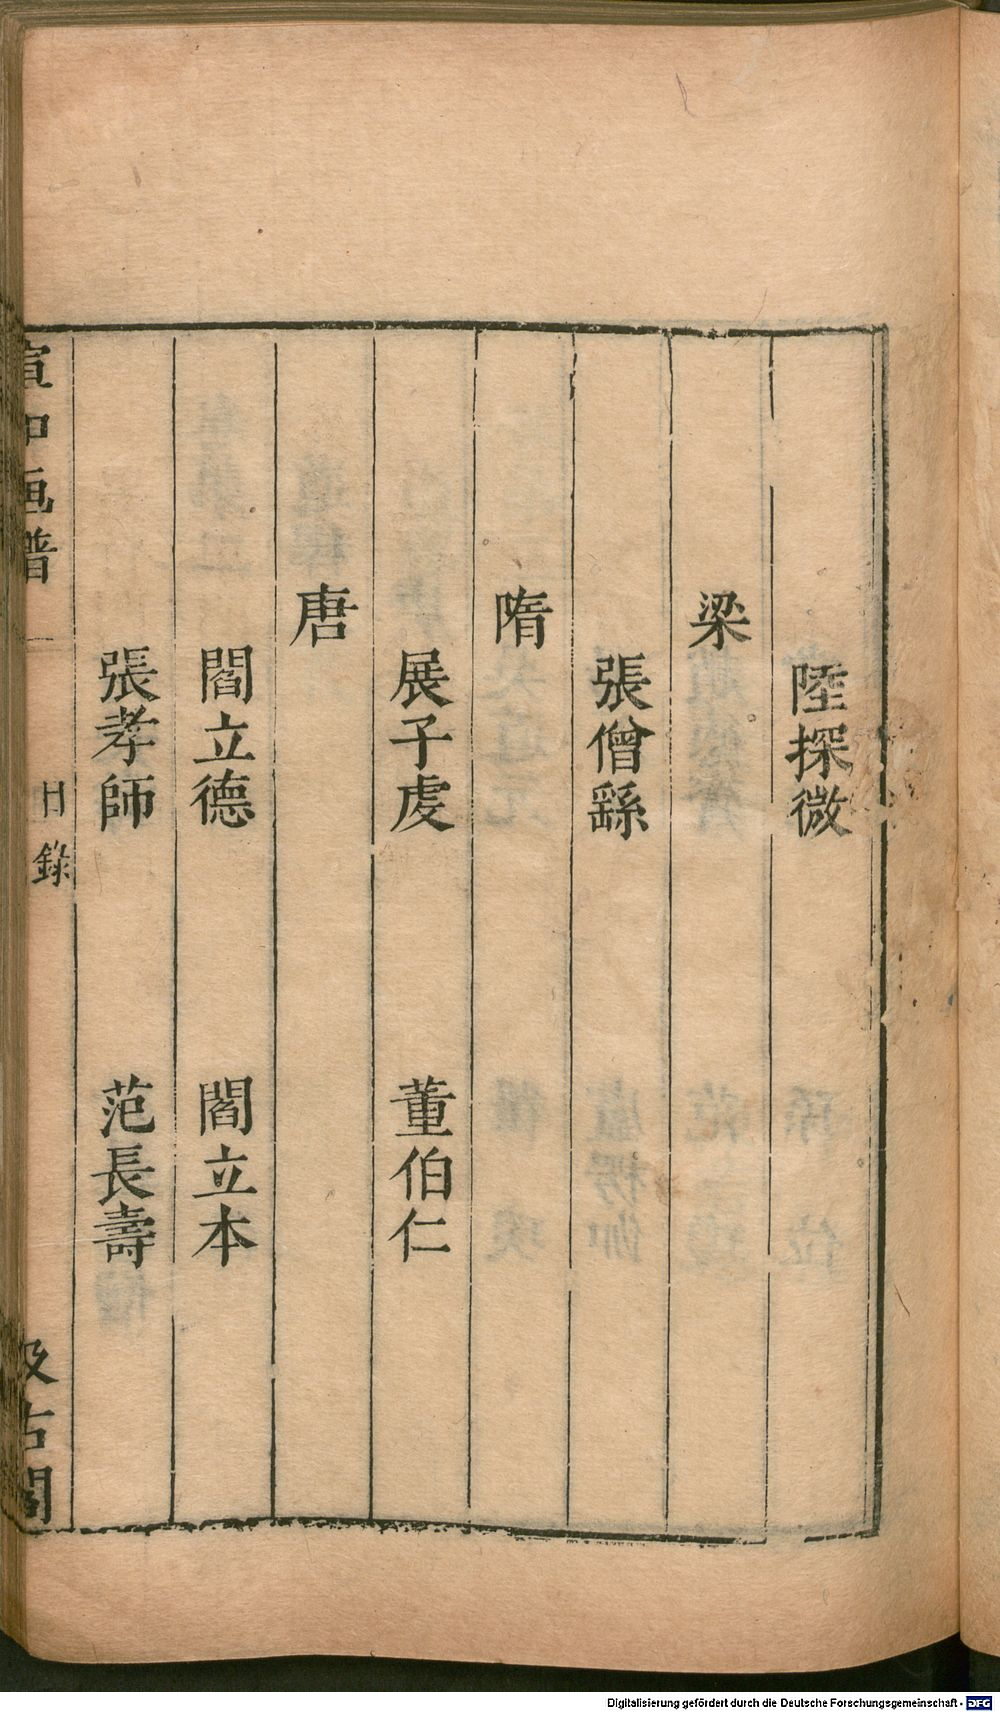 陸探微
梁
張僧繇
隋
展子虔 董伯仁
唐
閻立德 閻立本
張孝師 范長壽
宣和画譜 目錄 汲古閣
Digitalisierung gefördert durch die Deutsche Forschungsgemeinschaft - DFG